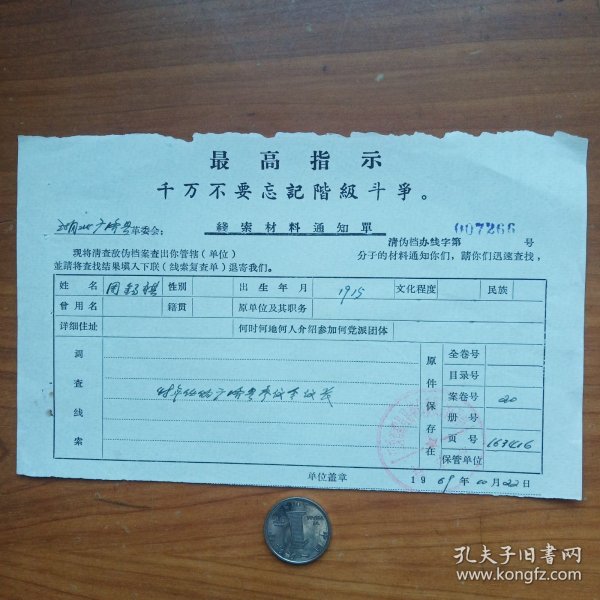 最高指示
千万不要忘記階級斗爭。
革委会：
綫索材料通知單
清伪档办线字第 007266 号
现将清查敌伪档案查出你管辖（单位） 分子的材料通知你们，請你们迅速查找，
並請将查找结果填入下联（线索复查单）退寄我们。
姓名 性别 出生年月 1915 文化程度 民族
曾用名 籍贯 原单位及其职务
详细住址 何时何地何人介绍参加何党派团体
調查线索
原件保存在
全卷号
目录号
案卷号 20
册号
页号
保管单位
单位盖章 1969年10月22日
孔夫子旧书网
www.kongfz.com